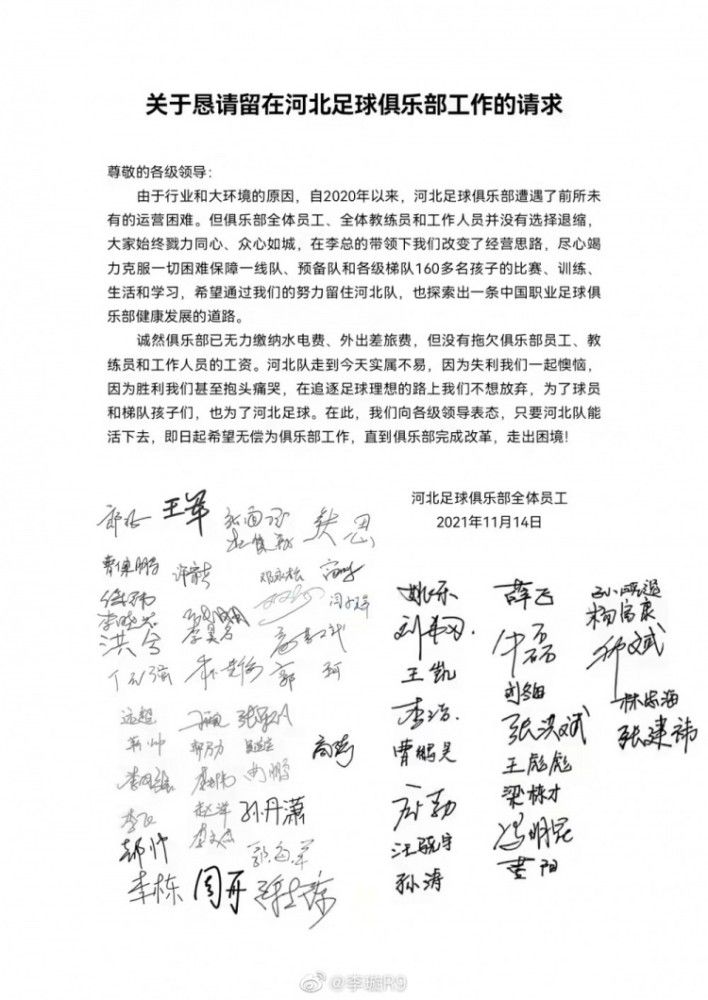 关于恳请留在河北足球俱乐部工作的请求
尊敬的各级领导：
由于行业和大环境的原因，自2020年以来，河北足球俱乐部遭遇了前所未
有的运营困难。但俱乐部全体员工、全体教练员和工作人员并没有选择退缩，
大家始终戮力同心、众心如城，在李总的带领下我们改变了经营思路，尽心竭
力克服一切困难保障一线队、预备队和各级梯队160多名孩子的比赛、训练、
生活和学习，希望通过我们的努力留住河北队，也探索出一条中国职业足球俱
乐部健康发展的道路。
诚然俱乐部已无力缴纳水电费、外出差旅费，但没有拖欠俱乐部员工、教
练员和工作人员的工资。河北队走到今天实属不易，因为失利我们一起懊恼，
因为胜利我们甚至抱头痛哭，在追逐足球理想的路上我们不想放弃，为了球员
和梯队孩子们，也为了河北足球。在此，我们向各级领导表态，只要河北队能
活下去，即日起希望无偿为俱乐部工作，直到俱乐部完成改革，走出困境！
河北足球俱乐部全体员工
2021年11月14日
王军
曹保鹏
李晓芯
洪兮
郭 珂
远超
高涛
孙丹潇
郝帅
李栋 周开
姚乐
王凯
李浩
曹鹏昊
汪骁宇
孙涛
薛飞
牛磊
张洪斌
王彪彪
梁栋才
冯明昆
黄阳
杨富康
林宏海
张建祎
@李璇R9